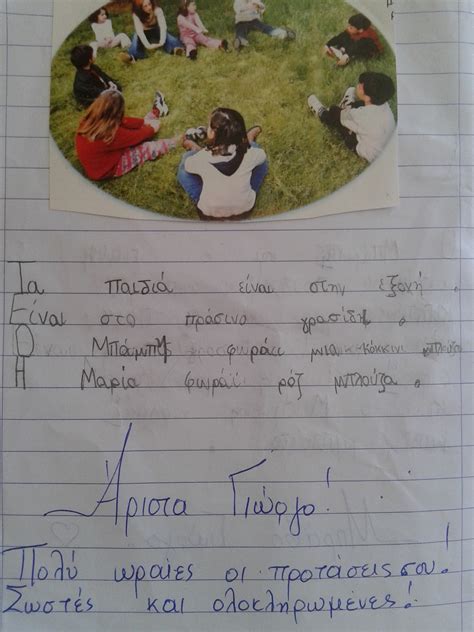 Τα παιδιά είναι στην εξοχή.
Είναι στο πράσινο γρασίδι.
Ο Μπάμπης φωράει μια κόκκινι μπλούζα
Η Μαρία φωράει ρόζ μπλούζα.
Άριστα Γιώργο!
Πολύ ωραίες οι προτάσεις σου!
Σωστές και ολοκληρωμένες!